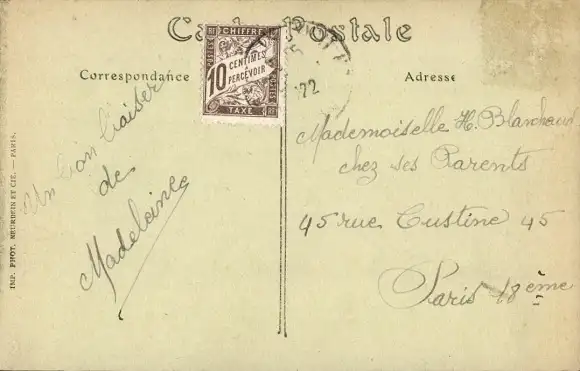 Carte Postale
Correspondance
Adresse
CHIFFRE
POSTES
10 CENTIMES
A
PERCEVOIR
TAXE
22
Un bon baiser
de
Madeleine
Mademoiselle H. Blanchaud
chez ses Parents
45 rue Custine 45
Paris 18ème
IMP. PHOT. NEURDEIN ET CIE. — PARIS.